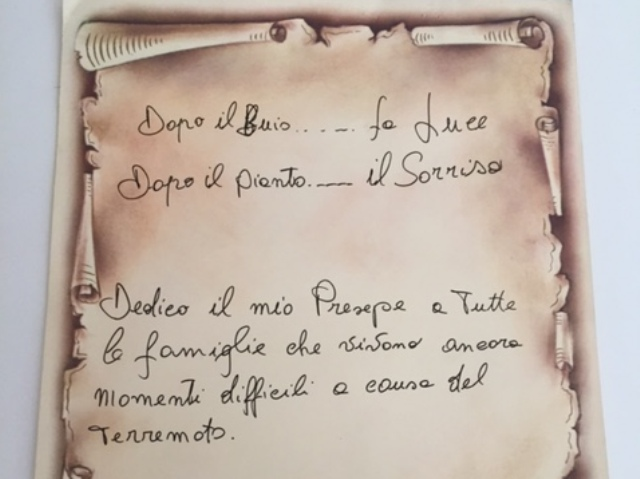 Dopo il Buio..... la Luce
Dopo il pianto.___ il Sorriso
Dedico il mio Presepe a Tutte
le famiglie che vivono ancora
momenti difficili a causa del
Terremoto.